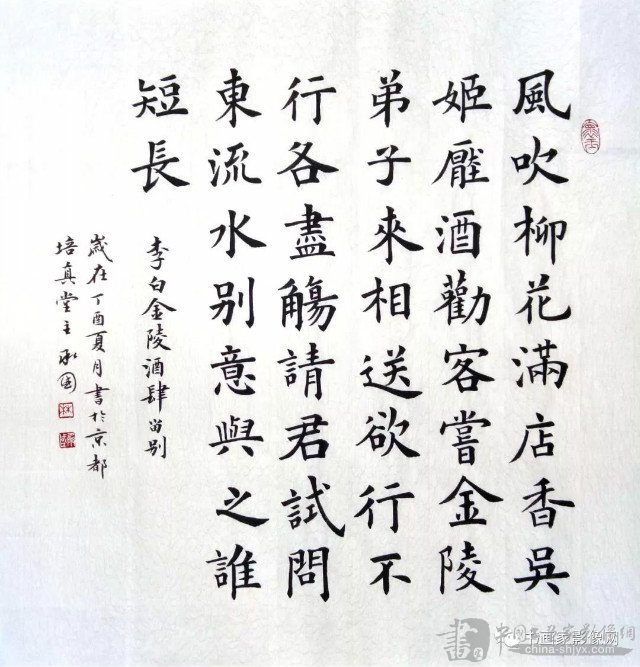 風吹柳花滿店香吳
姬壓酒勸客嘗金陵
弟子來相送欲行不
行各盡觴請君試問
東流水别意與之誰
短長
李白金陵酒肆留别
歲在丁酉夏月書於京都
培真堂主承國
书画家影像网
china-shjyx.com